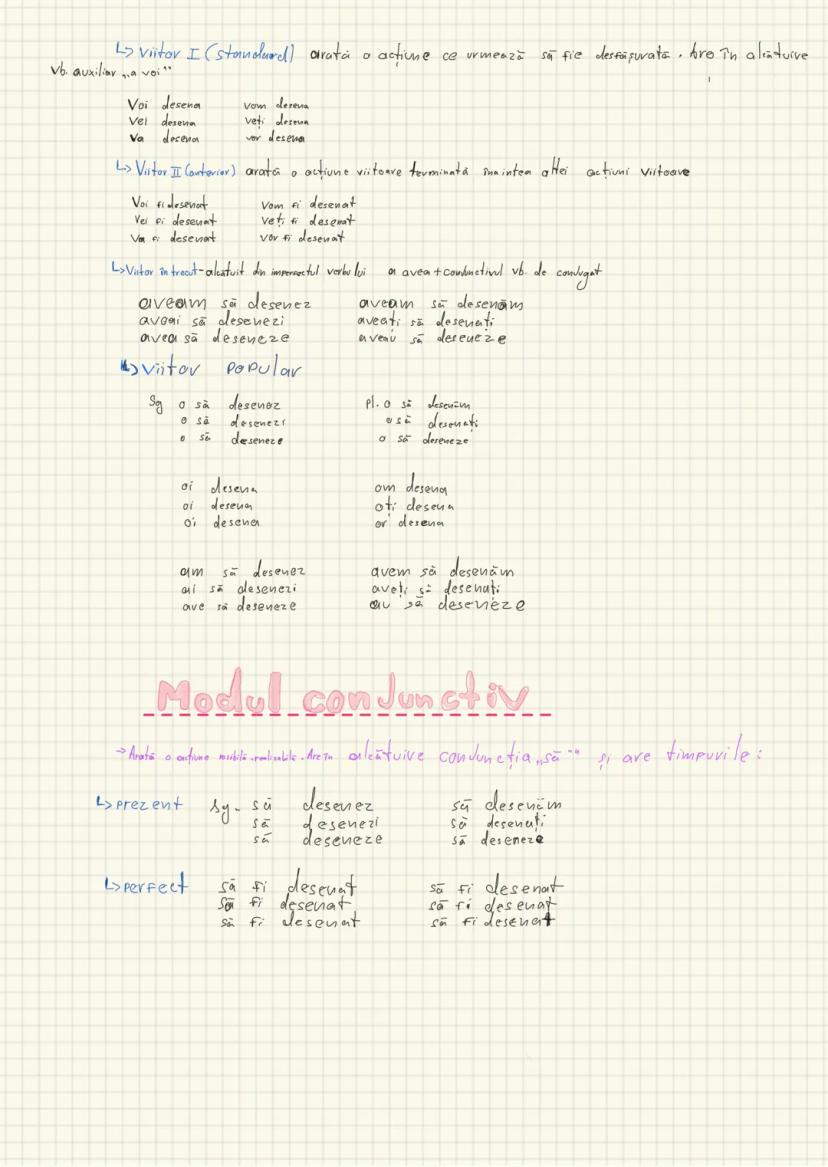 ↳ Viitor I (standard) arată o acțiune ce urmează să fie desfășurată. Are în alcătuire
vb. auxiliar „a voi"
Voi desena vom desena
Vei desena veți desena
Va desena vor desena
↳ Viitor II (anterior) arată o acțiune viitoare terminată înaintea altei acțiuni viitoare
Voi fi desenat Vom fi desenat
Vei fi desenat Veți fi desenat
Va fi desenat Vor fi desenat
↳ Viitor în trecut - alcătuit din imperfectul verbului a avea + conjunctivul vb. de conjugat
aveam să desenez aveam să desenăm
aveai să desenezi aveați să desenați
avea să deseneze aveau să deseneze
↳ Viitor popular
Sg o să desenez pl. o să desenăm
o să desenezi o să desenați
o să deseneze o să deseneze
oi desena om desena
oi desena oți desena
oi desena or desena
am să desenez avem să desenăm
ai să desenezi aveți să desenați
ave să deseneze au să deseneze
Modul conjunctiv
→ Arată o acțiune posibilă, realizabilă. Are în alcătuire conjuncția „să" și are timpurile:
↳ prezent sg. să desenez să desenăm
să desenezi să desenați
să deseneze să deseneze
↳ perfect să fi desenat să fi desenat
să fi desenat să fi desenat
să fi desenat să fi desenat